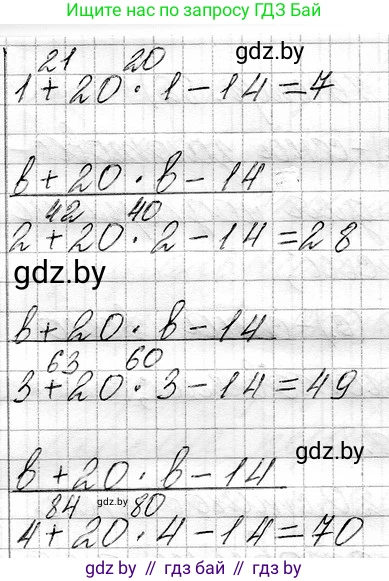 Ищите нас по запросу ГДЗ Бай
gdz.by
21 20
1 + 20 · 1 - 14 = 7
в + 20 · в - 14
42 40
2 + 20 · 2 - 14 = 28
gdz.by
в + 20 · в - 14
63 60
3 + 20 · 3 - 14 = 49
gdz.by
в + 20 · в - 14
84 gdz.by 80
4 + 20 · 4 - 14 = 70
gdz.by // гдз бай // gdz.by // гдз бай